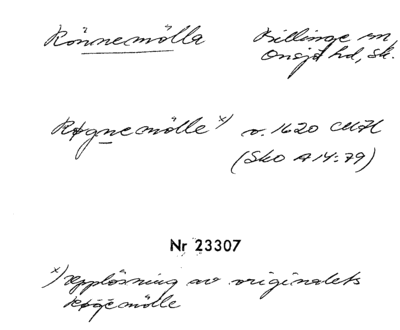 Rönnemölla Billinge sn,
Onsjö hd, Sk.
Røgnemölle x) v. 1620 CMH
(Sko A 14:79)
Nr 23307
x) Upplösning av originalets
Røḡemölle